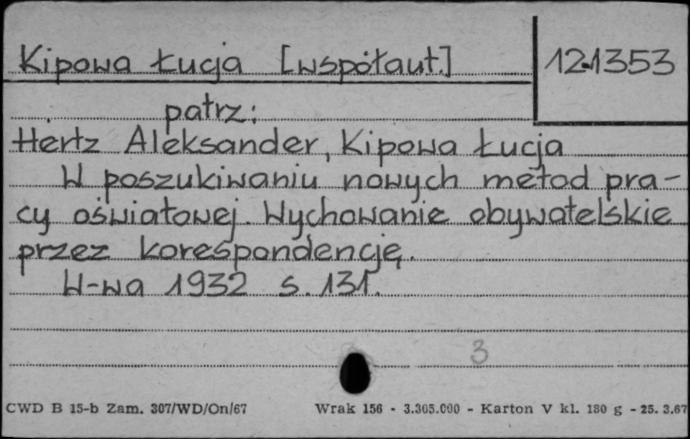 Kipowa Łucja [współaut.] 12.1353
patrz:
Hertz Aleksander, Kipowa Łucja
W poszukiwaniu nowych metod pra-
cy oświatowej. Wychowanie obywatelskie
przez korespondencję.
W-wa 1932 s. 131.
3
CWD B 15-b Zam. 307/WD/On/67 Wrak 156 - 3.305.000 - Karton V kl. 180 g - 25. 3.67